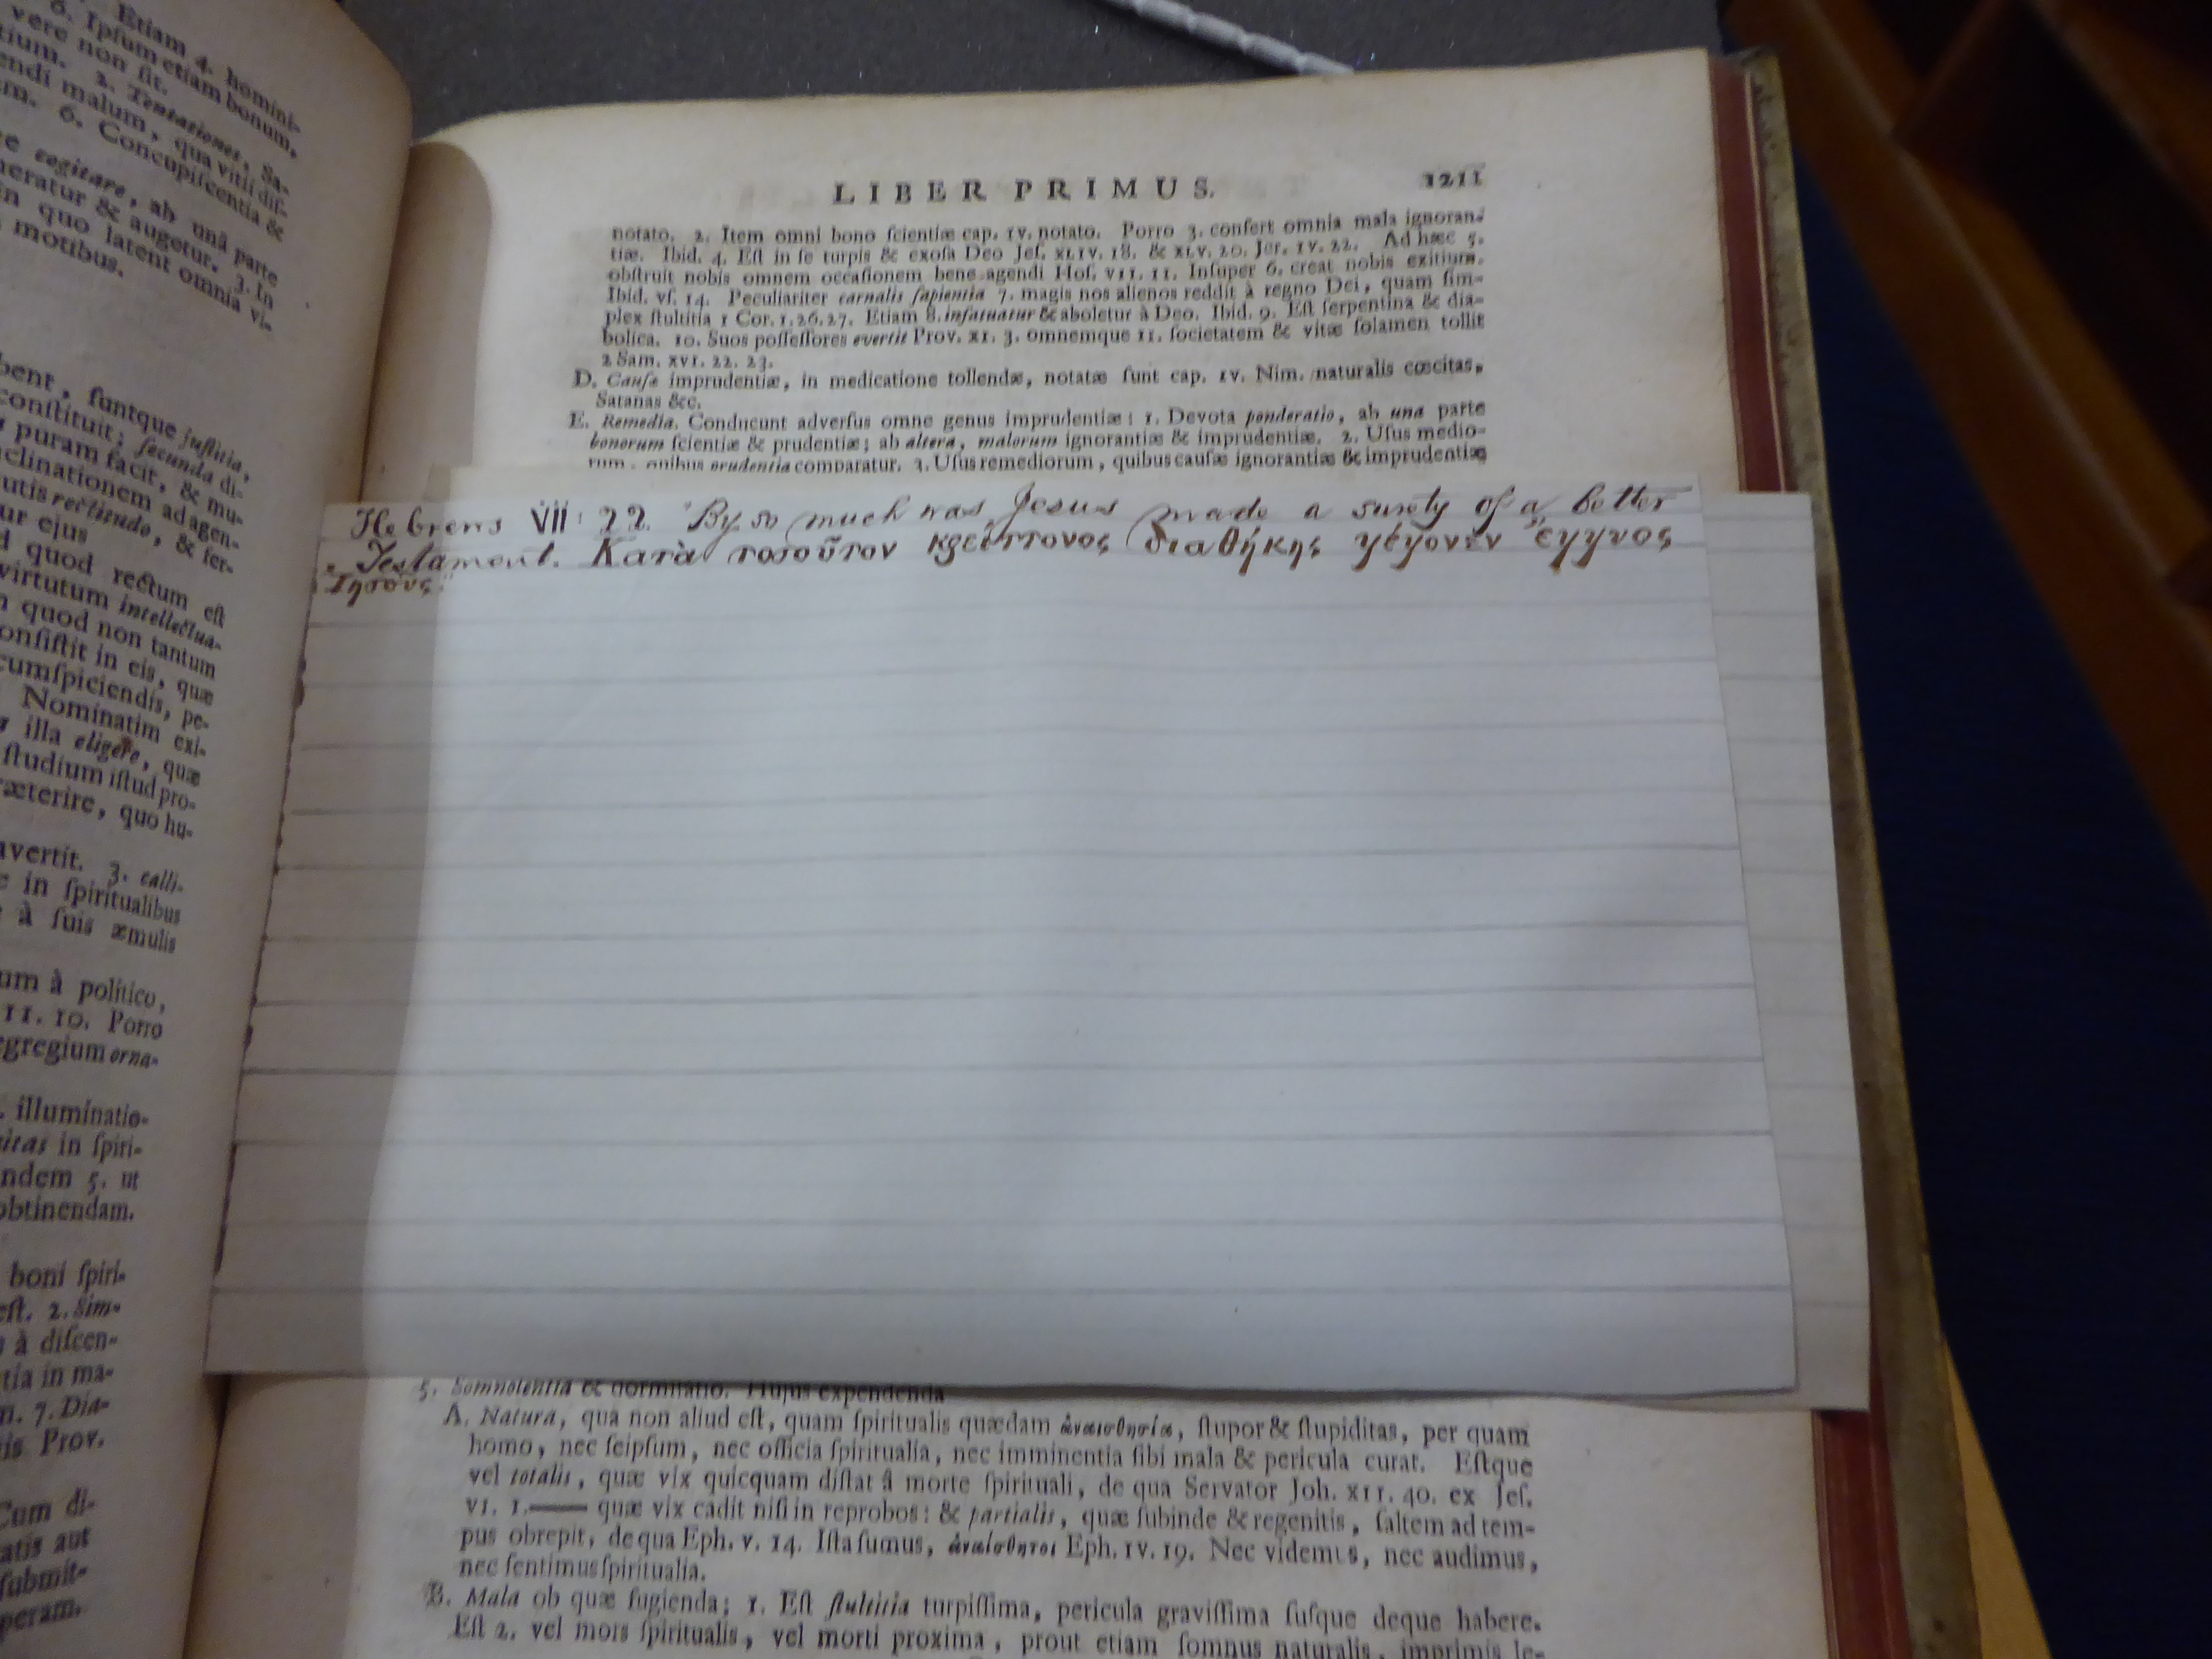 Etiam 4. homini-
6. Ipſum etiam bonum,
vere non ſit.
tium. 2. Tentationes, Sa-
endi malum, qua vitii diſ-
m. 6. Concupiſcentia &
e cogitare, ab unâ parte
neratur & augetur. 3. In
in quo latent omnia vi-
motibus.
bent, ſuntque juſtitia,
conſtituit; ſecunda di-
puram facit, & mu-
clinationem ad agen-
utis rectitudo, & ſer-
ur ejus
d quod rectum eſt
virtutum intellectua-
n quod non tantum
onſiſtit in eis, quæ
cumſpiciendis, pe-
Nominatim exi-
illa eligere, quæ
ſtudium iſtud pro-
ræterire, quo hu-
avertit. 3. calli-
in ſpiritualibus
à ſuis æmulis
um à politico,
11. 10. Porro
egregium orna-
illuminatio-
itas in ſpiri-
ndem 5. ut
obtinendam.
boni ſpiri-
eſt. 2. Sim-
à diſcen-
tia in ma-
n. 7. Dia-
is Prov.
Cum di-
atis aut
ſubmit-
peram.
LIBER PRIMUS. 1211
notato. 2. Item omni bono ſcientiæ cap. IV. notato. Porro 3. confert omnia mala ignoran-
tiæ. Ibid. 4. Eſt in ſe turpis & exoſa Deo Jeſ. XLIV. 18. & XLV. 20. Jer. IV. 22. Ad hæc 5.
obſtruit nobis omnem occaſionem bene agendi Hoſ. VII. 11. Inſuper 6. creat nobis exitium.
Ibid. vſ. 14. Peculiariter carnalis ſapientia 7. magis nos alienos reddit à regno Dei, quam ſim-
plex ſtultitia 1 Cor. 1. 26. 27. Etiam 8. infatuatur & aboletur à Deo. Ibid. 9. Eſt ſerpentina & dia-
bolica. 10. Suos poſſeſſores evertit Prov. XI. 3. omnemque 11. ſocietatem & vitæ ſolamen tollit
2 Sam. XVI. 22. 23.
D. Cauſæ imprudentiæ, in medicatione tollendæ, notatæ ſunt cap. IV. Nim. naturalis cœcitas,
Satanas &c.
E. Remedia. Conducunt adverſus omne genus imprudentiæ: 1. Devota ponderatio, ab una parte
bonorum ſcientiæ & prudentiæ; ab altera, malorum ignorantiæ & imprudentiæ. 2. Uſus medio-
rum, quibus prudentia comparatur. 3. Uſus remediorum, quibus cauſæ ignorantiæ & imprudentiæ
Hebrews VII: 22. "By so much was Jesus made a surety of a better
"Testament. Κατὰ τοσοῦτον κρείττονος διαθήκης γέγονεν ἔγγυος
Ἰησοῦς."
5. Somnolentia & dormitatio. Hujus expendenda
A. Natura, qua non aliud eſt, quam ſpiritualis quædam ἀναισθησία, ſtupor & ſtupiditas, per quam
homo, nec ſeipſum, nec officia ſpiritualia, nec imminentia ſibi mala & pericula curat. Eſtque
vel totalis, quæ vix quicquam diſtat â morte ſpirituali, de qua Servator Joh. XII. 40. ex Jeſ.
VI. 1.—— quæ vix cadit niſi in reprobos: & partialis, quæ ſubinde & regenitis, ſaltem ad tem-
pus obrepit, de qua Eph. V. 14. Iſta ſumus, ἀναίσθητοι Eph. IV. 19. Nec videmus, nec audimus,
nec ſentimus ſpiritualia.
B. Mala ob quæ fugienda; 1. Eſt ſtultitia turpiſſima, pericula graviſſima ſuſque deque habere.
Eſt 2. vel mors ſpiritualis, vel morti proxima, prout etiam ſomnus naturalis, imprimis le-